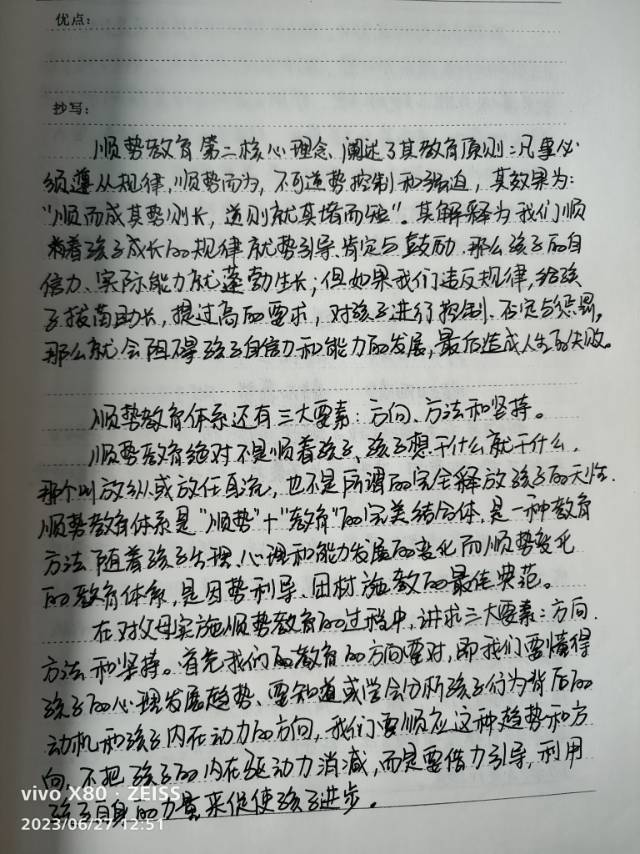 优点:
抄写:
顺势教育第二核心理念,阐述了其教育原则:凡事必
须遵从规律,顺势而为,不可逆势控制和强迫,其效果为:
“顺而成其势则长,逆则就其堵而短”。其解释为我们顺
着孩子成长的规律就势引导、肯定与鼓励,那么孩子的自
信力、实际能力就蓬勃生长;但如果我们违反规律,给孩
子拔苗助长,提过高的要求,对孩子进行控制、否定与惩罚,
那么就会阻碍孩子自信力和能力的发展,最后造成人生的失败。
顺势教育体系还有三大要素:方向、方法和坚持。
顺势教育绝对不是顺着孩子、孩子想干什么就干什么,
那个叫放纵或放任自流,也不是所谓的完全解放孩子的天性.
顺势教育体系是“顺势”+“教育”的完美结合体,是一种教育
方法随着孩子生理、心理和能力发展的变化而顺势变化
的教育体系,是因势利导、因材施教的最佳典范。
在对父母实施顺势教育的过程中,讲求三大要素:方向.
方法和坚持。首先我们的教育的方向要对,即我们要懂得
孩子的心理发展趋势、要知道或学会分析孩子行为背后的
动机和孩子内在动力的方向,我们要顺应这种趋势和方
向,不把孩子的内在驱动力消减,而是要借力引导,利用
孩子自身的力量来促使孩子进步。
vivo X80 · ZEISS
2023/06/27 12:51